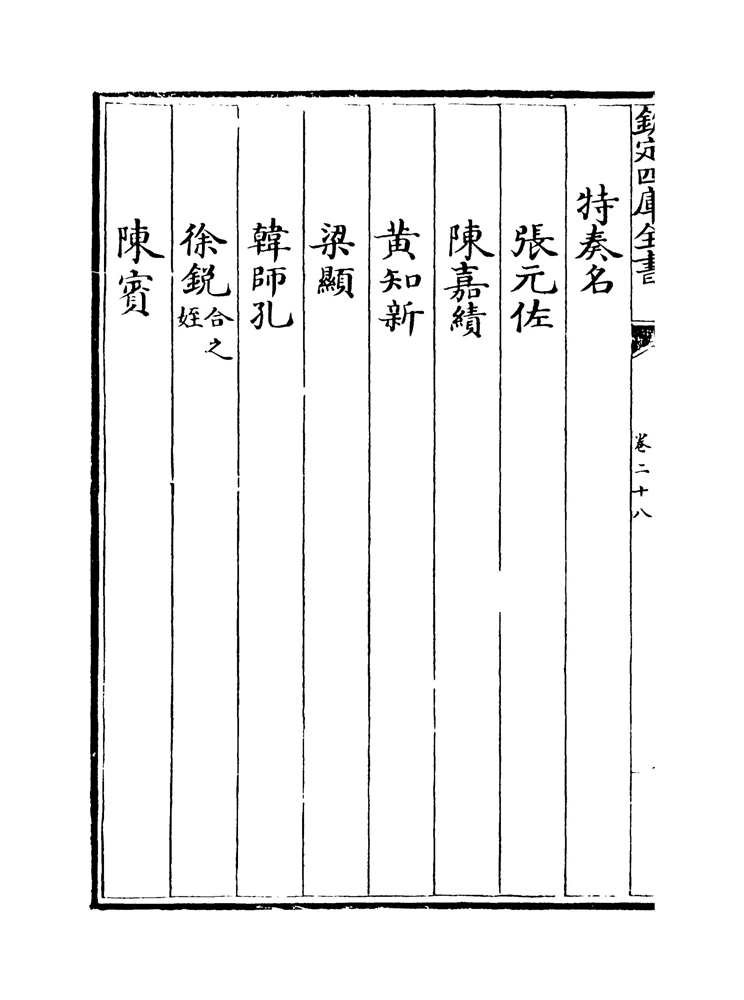 欽定四庫全書
卷二十八
特奏名
張元佐
陳嘉績
黄知新
梁顯
韓師孔
徐鋭合之姪
陳賓